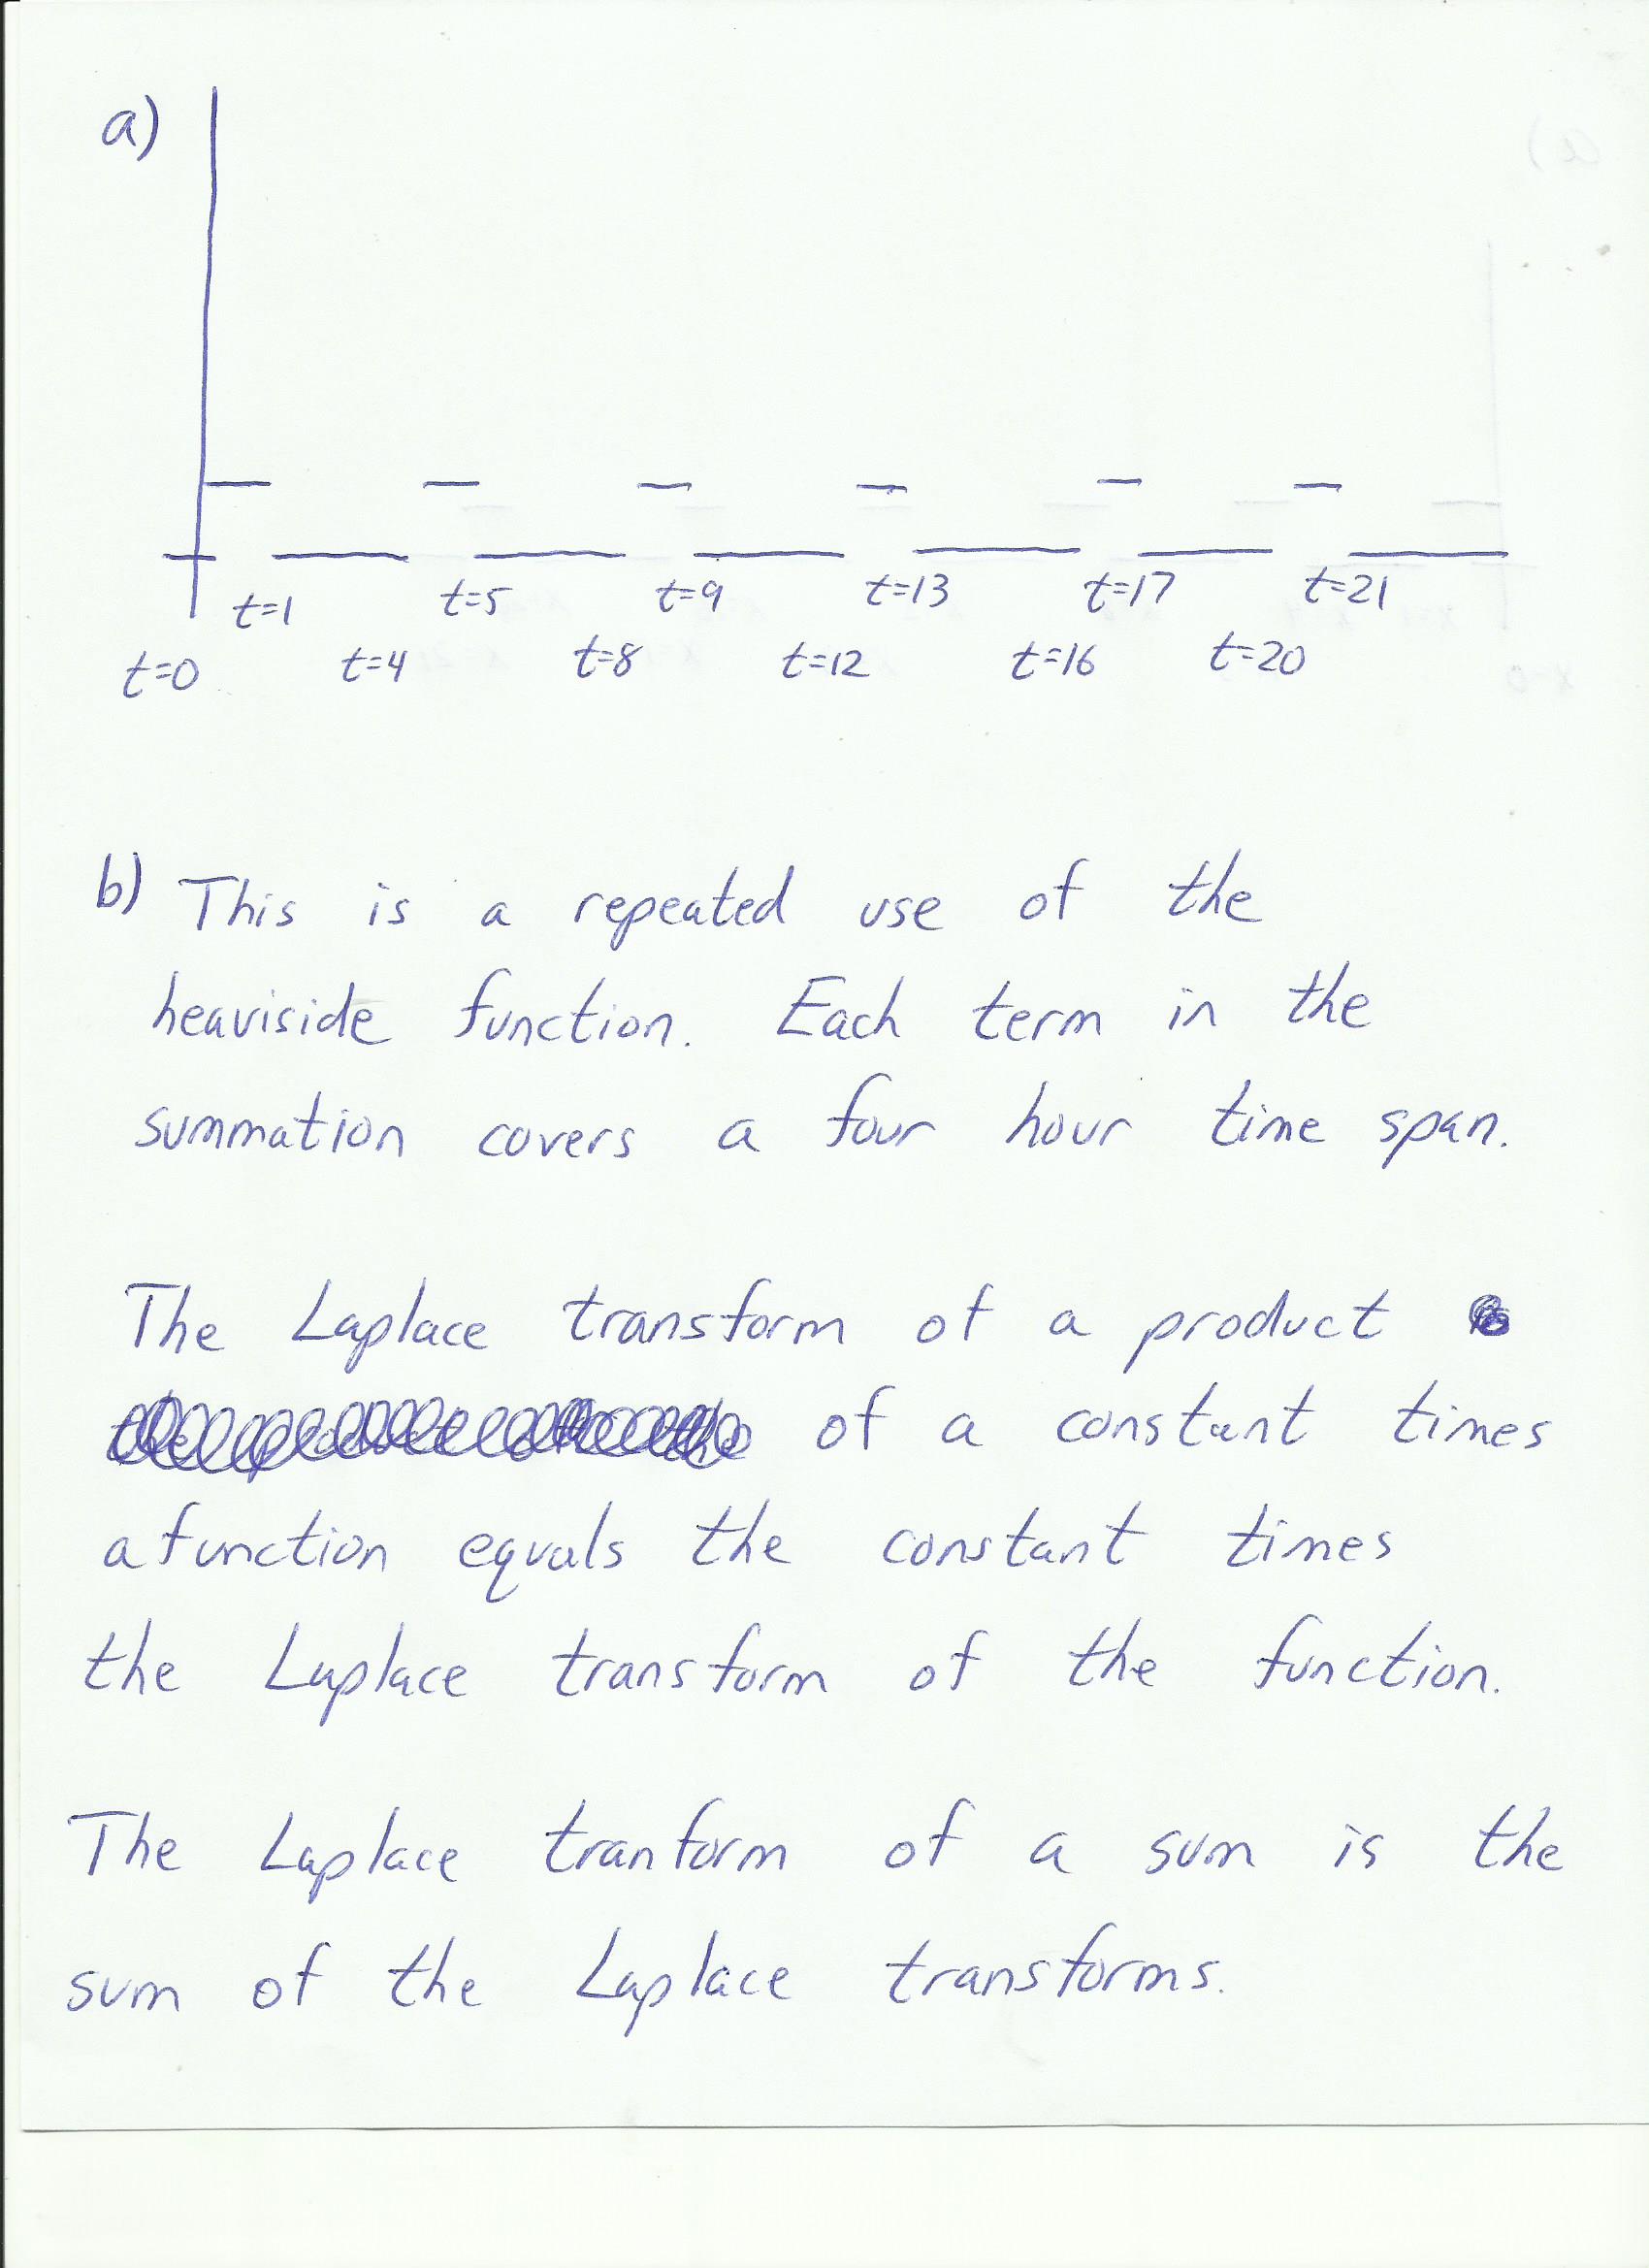 a)
t=1 t=5 t=9 t=13 t=17 t=21
t=0 t=4 t=8 t=12 t=16 t=20
b) This is a repeated use of the
heaviside function. Each term in the
summation covers a four hour time span.
The Laplace transform of a product
of a constant times
a function equals the constant times
the Laplace transform of the function.
The Laplace tranform of a sum is the
sum of the Laplace transforms.